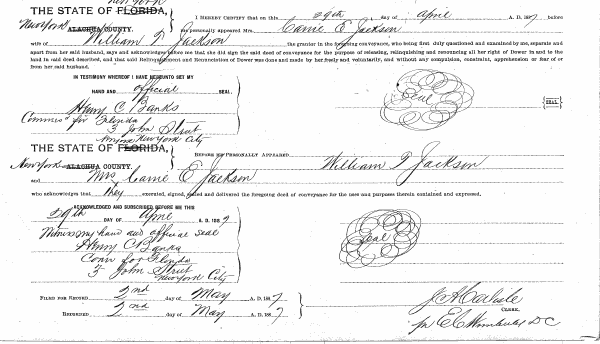 New York
THE STATE OF FLORIDA,
New York ALACHUA COUNTY.
I HEREBY CERTIFY that on this 29th day of April A. D. 1887 before
me personally appeared Mrs. Carrie E. Jackson
wife of William T. Jackson the grantor in the foregoing conveyance, who being first duly questioned and examined by me, separate and
apart from her said husband, says and acknowledges before me that she did sign the said deed of conveyance for the purpose of releasing, relinquishing and renouncing all her right of Dower in and to the
land in said deed described, and that said Relinquishment and Renunciation of Dower was done and made by her freely and voluntarily, and without any compulsion, constraint, apprehension or fear of or
from her said husband.
IN TESTIMONY WHEREOF I HAVE HEREUNTO SET MY
HAND AND official SEAL.
Henry C. Banks
Commis' for Florida
3 John Street
New York City
Seal
SEAL
THE STATE OF FLORIDA,
New York ALACHUA COUNTY.
BEFORE ME PERSONALLY APPEARED William T Jackson
and Mrs Carrie E Jackson
who acknowledges that they executed, signed, sealed and delivered the foregoing deed of conveyance for the uses and purposes therein contained and expressed.
ACKNOWLEDGED AND SUBSCRIBED BEFORE ME THIS
29th DAY OF April A. D. 1887
Witness my hand and official seal
Henry C Banks
Com for Florida
3 John Street
New York City
Seal
FILED FOR RECORD 2nd day of May A. D. 1887
RECORDED 2nd day of May A. D. 1887
J A Carlisle
CLERK.
per E C Wimberly D C